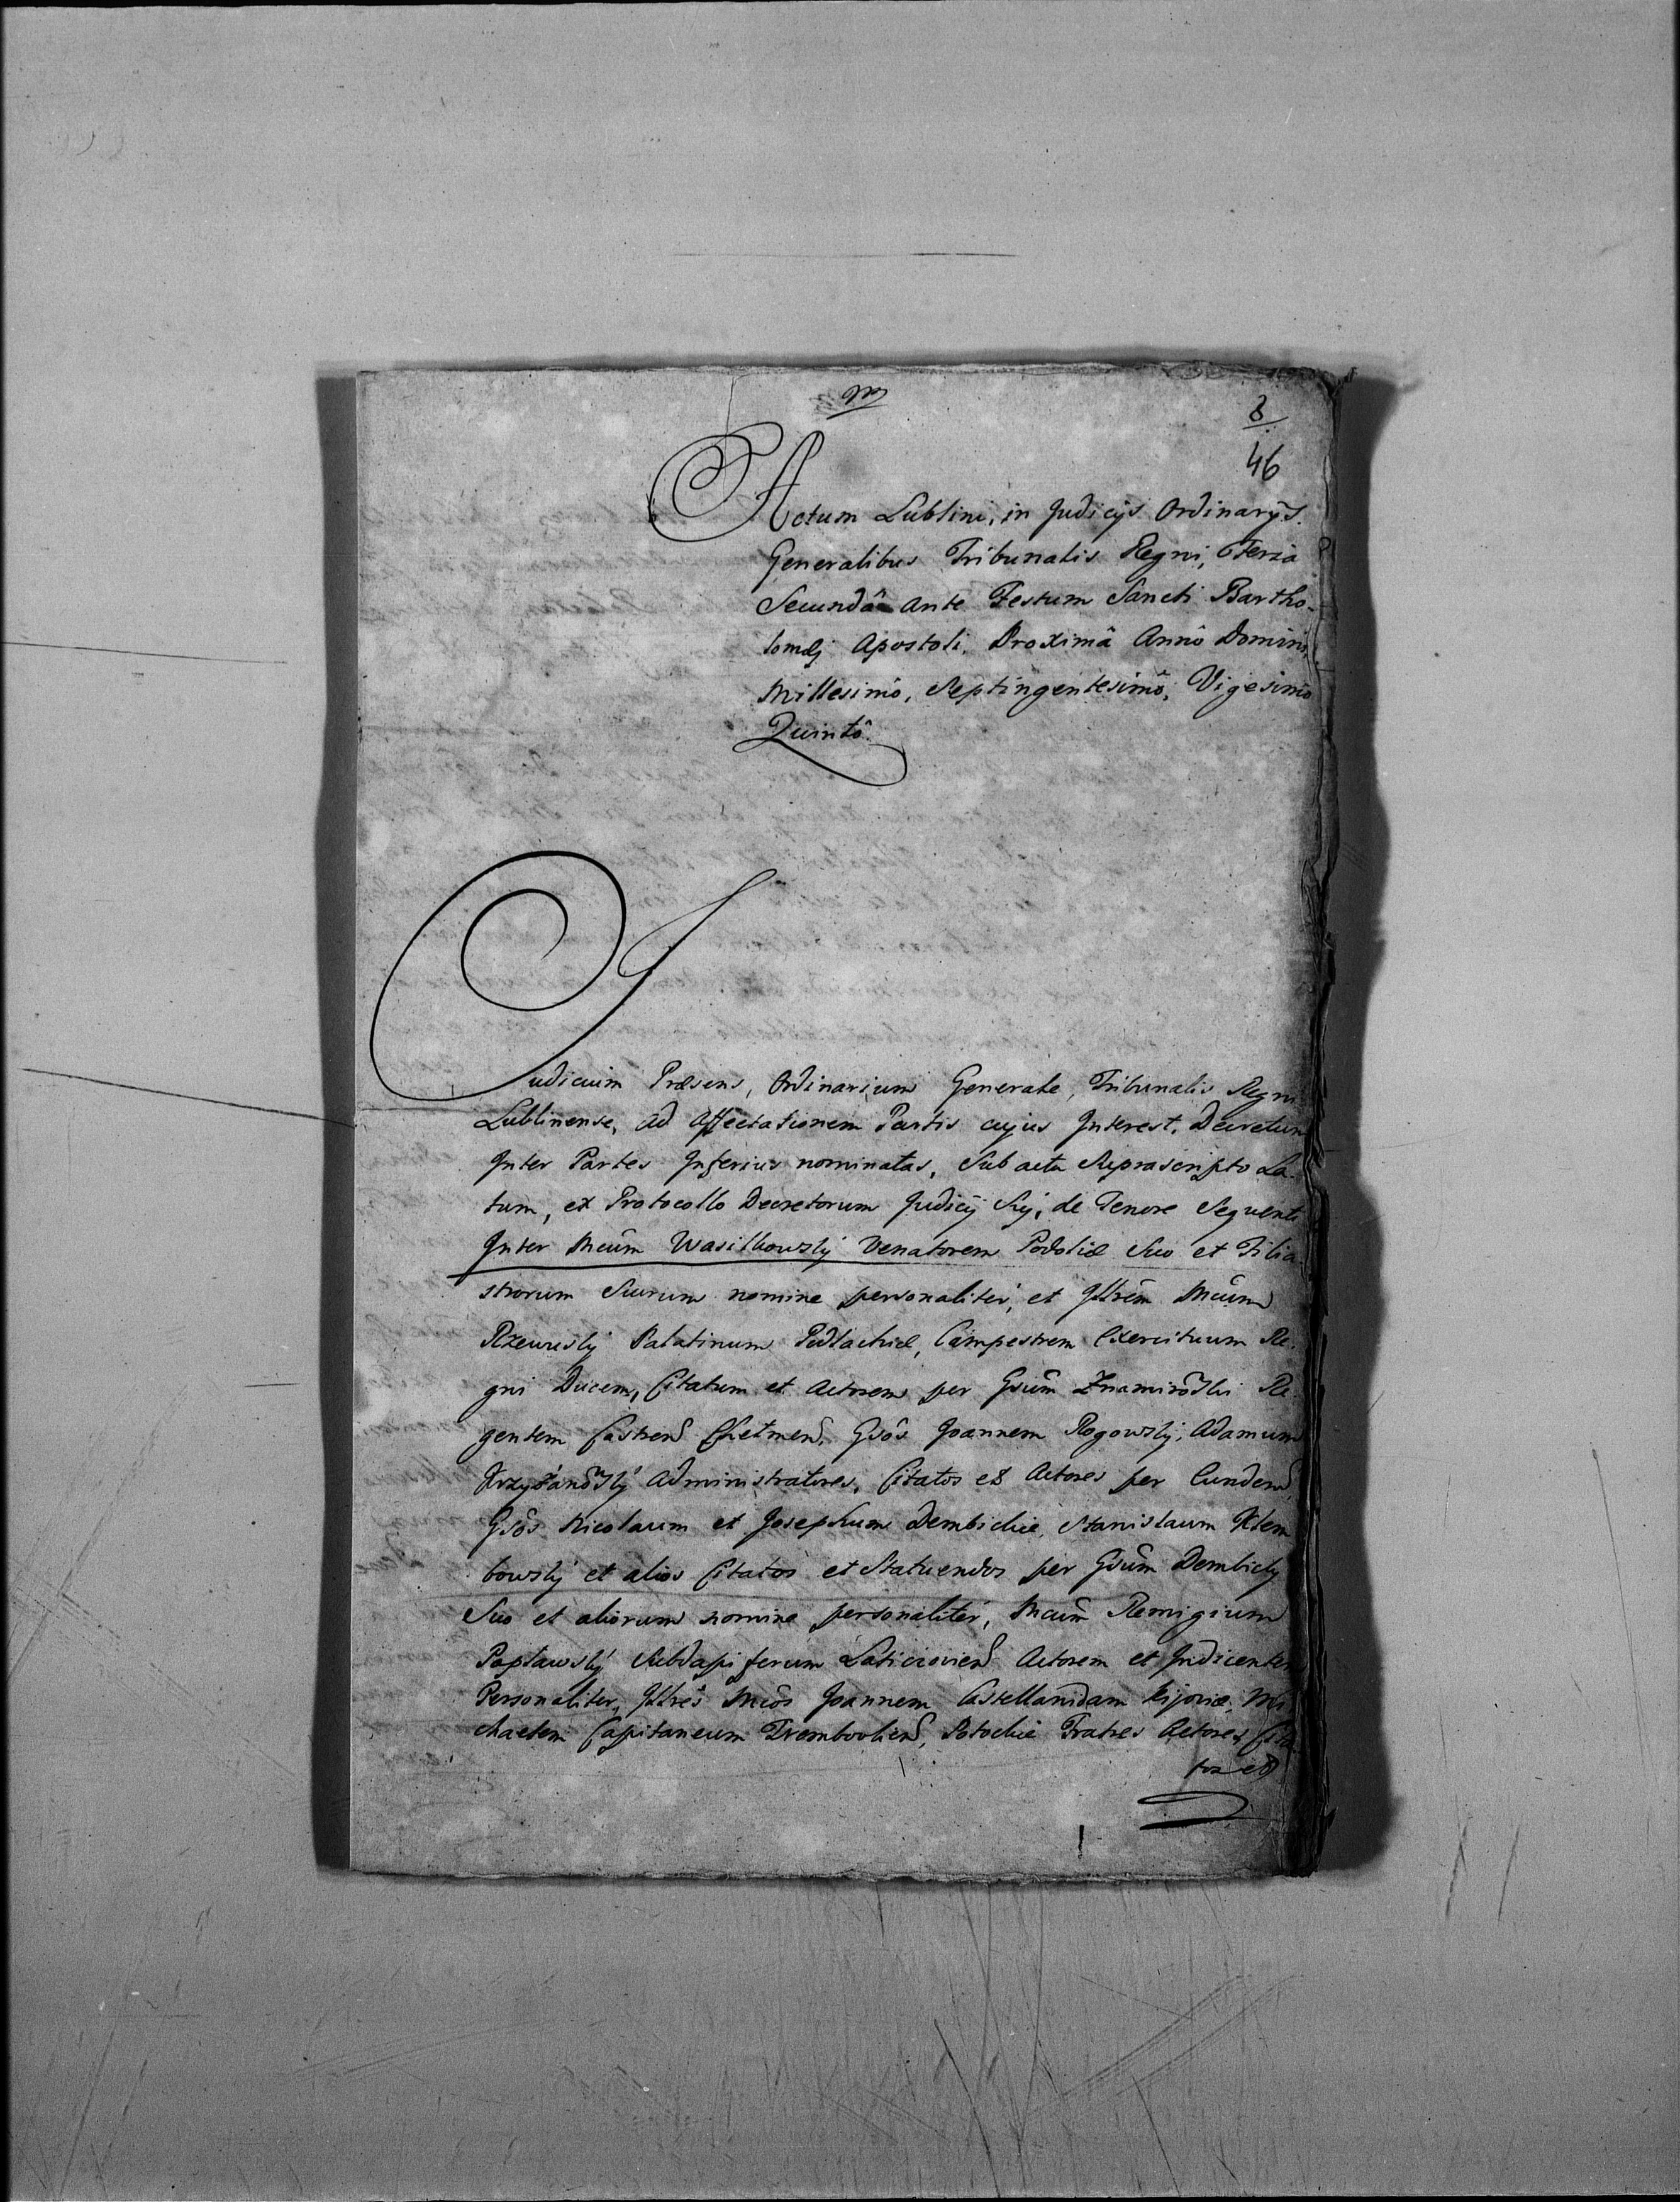 8
46
Actum Lublini, in Judicijs Ordinarijs.
Generalibus Tribunalis Regni, Feria
Secundâ ante Festum Sancti Bartho-
lomæj Apostoli, Proximâ Annô Domini,
Millesimô, Septingentesimô, Vigesimô
Quintô.
Judicium Præsens, Ordinarium Generale, Tribunalis Regni
Lublinense, ad Affectationem Partis cujus Interest, Decretum
Inter Partes Inferius nominatas, Sub actu Suprascripto La-
tum, ex Protocollo Decretorum Judicij Sui, de Tenore Sequenti
Inter Mcûm Wasilkowskj Venatorem Podoliæ Suo et Filia-
strorum Suorum nomine personaliter, et Jllrêm Mcûm
Rzewuskj Palatinum Podlachiæ, Campestrem Exercituum Re-
gni Ducem, Citatum et Actorem per Gsûm Znamirôskj Re-
gentem Castren Chelmen, Gsôs Joannem Rogowskj, Adamum
Krzyżanôskj Administratores, Citatos et Actores per Eundem,
Gsôs Nicolaum et Josephum Dembickie, Stanislaum Klem
bowskj et alios Citatos et Statuendos per Gsûm Dembickj
Suo et aliorum nomine personaliter, Mcûm Remigium
Popławskj Subdapiferum Laticzovien Actorem et Indicentem
Personaliter, Jllrês Mcôs Joannem Castellanidam Kijoviæ, Mi-
chaelem Capitaneum Trembovlien, Potockie Fratres Actores, Cita-
tos et